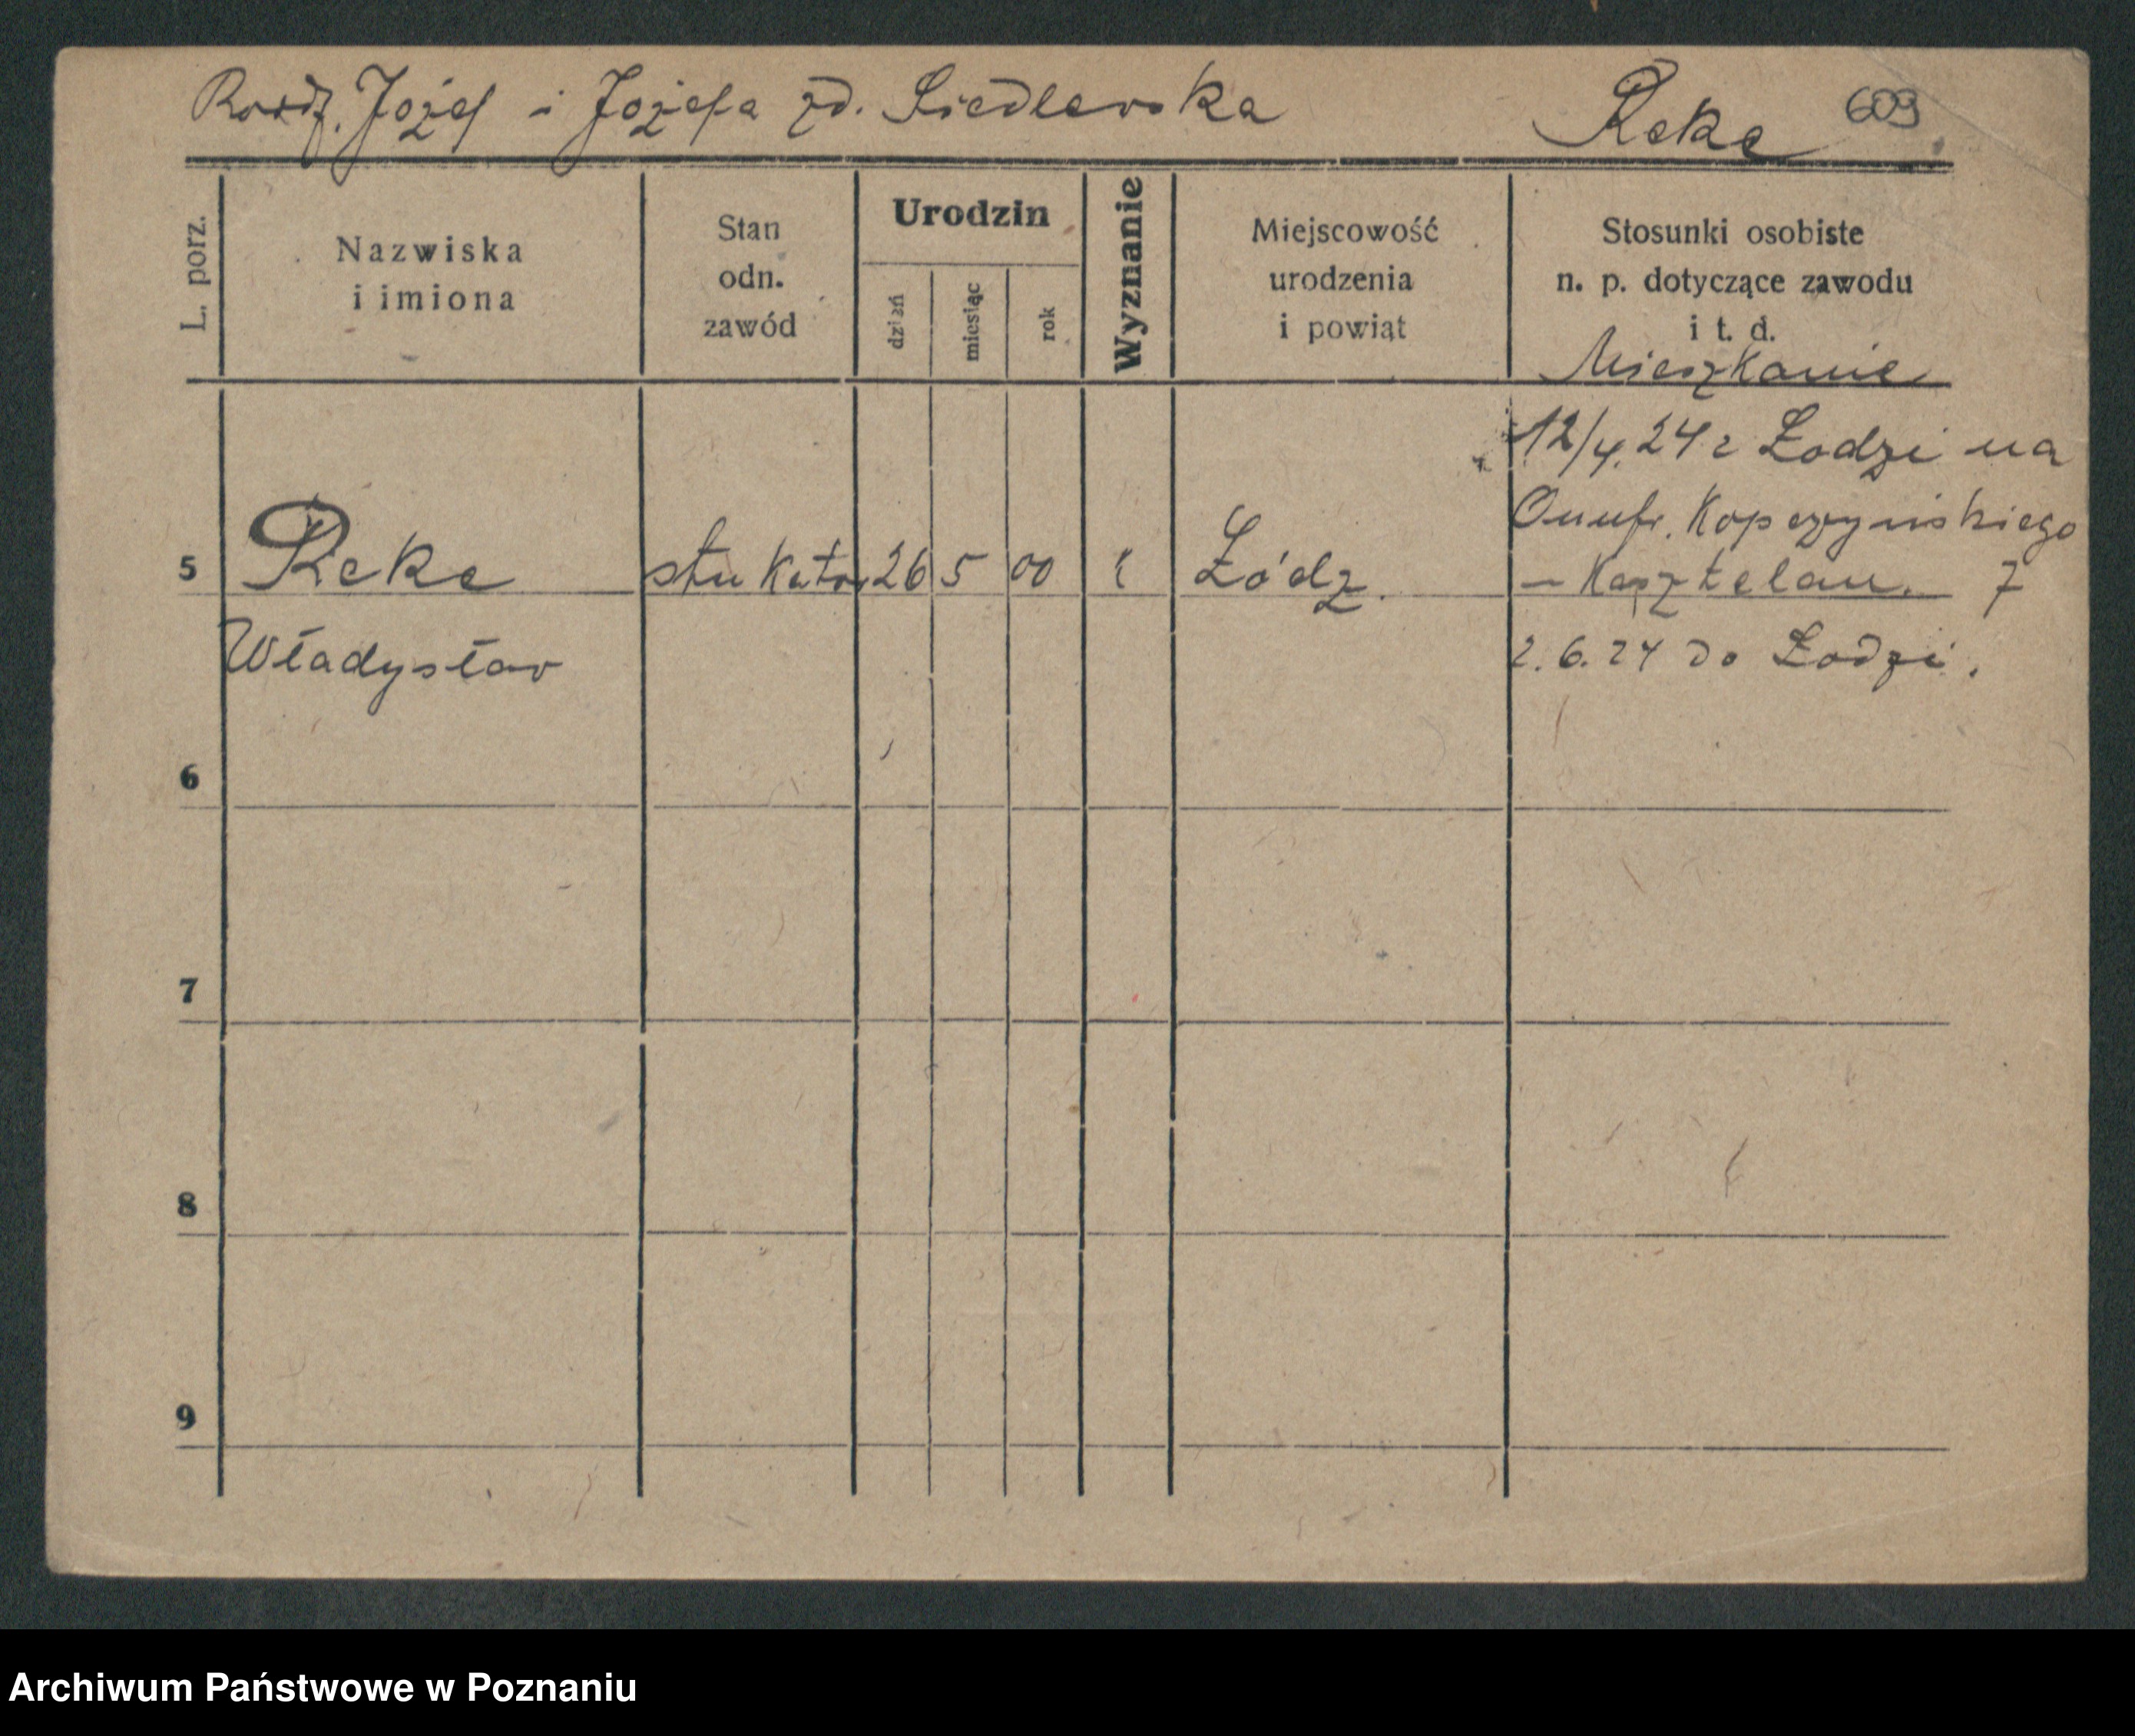 Rodz. Jozef i Jozefa zd. Siedlewska Reke 609
L. porz.
Nazwiska
i imiona
Stan
odn.
zawód
Urodzin
dzień
miesiąc
rok
Wyznanie
Miejscowość
urodzenia
i powiąt
Stosunki osobiste
n. p. dotyczące zawodu
i t. d.
Mieszkanie
12/4. 24 z Łodzi na
Onufr. Kopczyńskiego
5 Reke stukator 26 5 00 Łódz. – Kasztelan. 7
Władysław 2.6.24 do Łodzi.
6
7
8
9
Archiwum Państwowe w Poznaniu